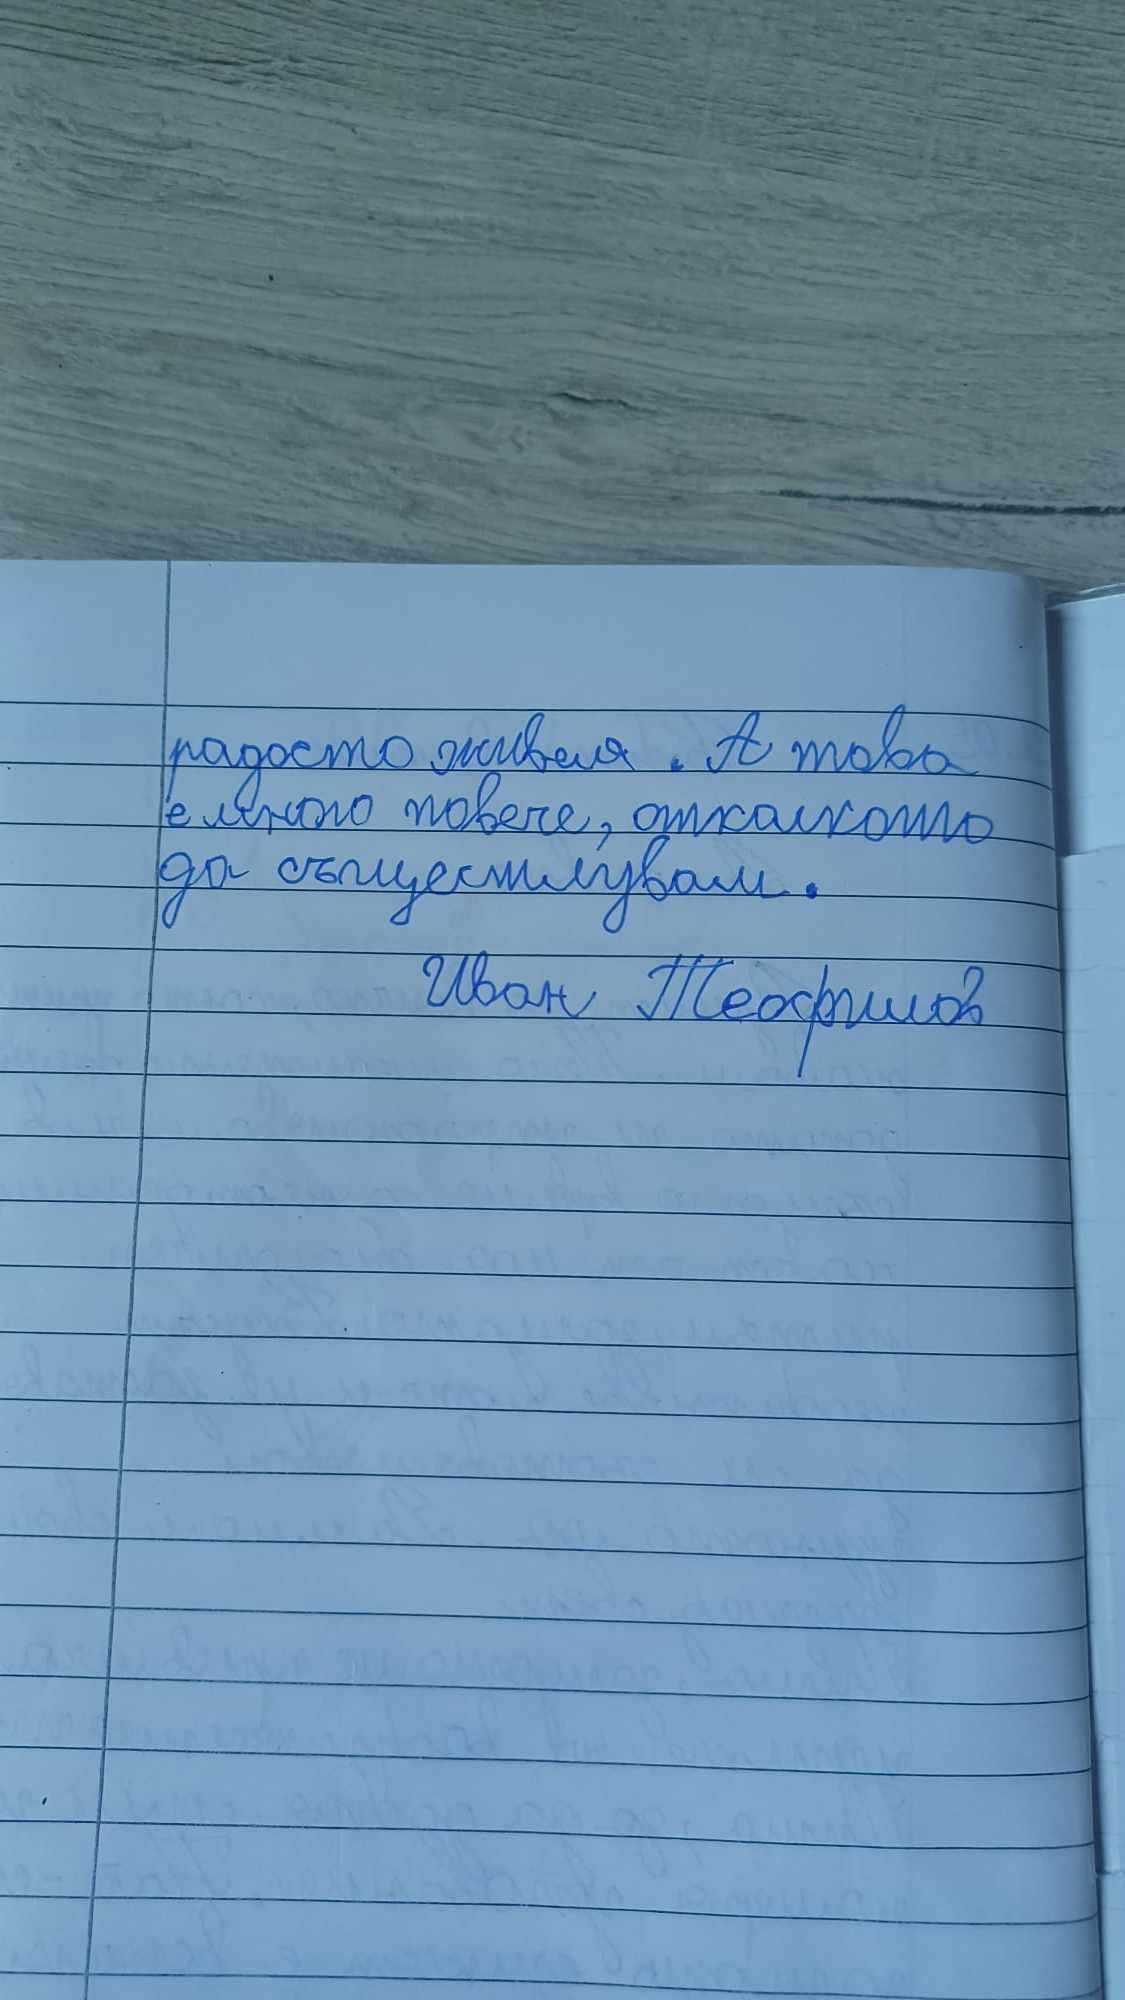 радосто живея. А това
е много повече, отколкото
да съществувам.
Иван Теофилов